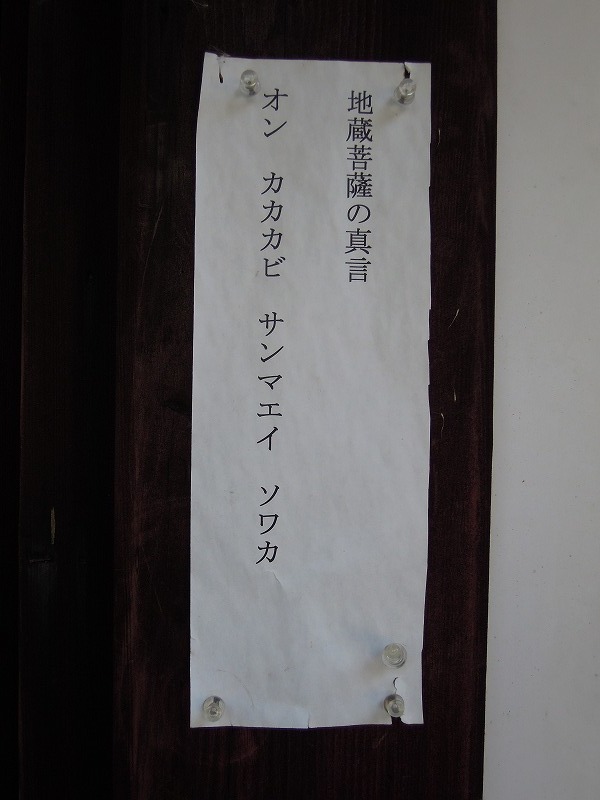 地蔵菩薩の真言
オン　カカカビ　サンマエイ　ソワカ